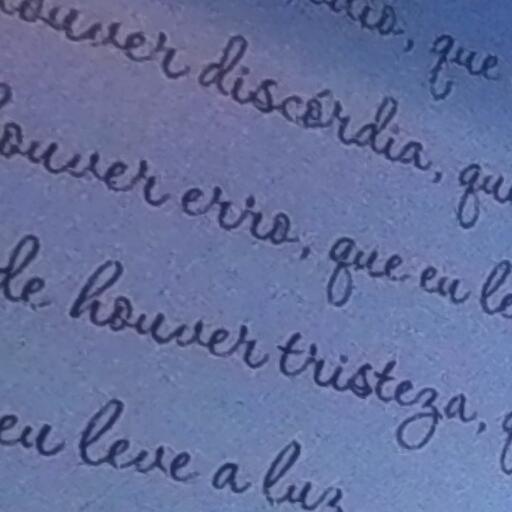 ouver ódio, que
houver discórdia, que
houver erro, que eu le
de houver tristeza, q
eu leve a luz